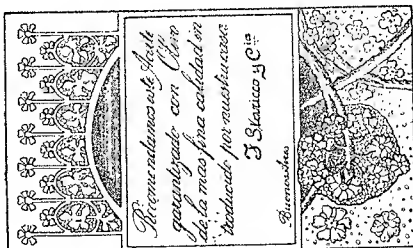 Recomendamos este Aceite
garantizado con Clavo
de la mas fina calidad in
troducido por nuestra casa.
J Storico y Cia
Buenos Aires